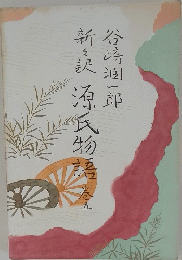 谷崎潤一郎
新々訳
源氏物語
巻九